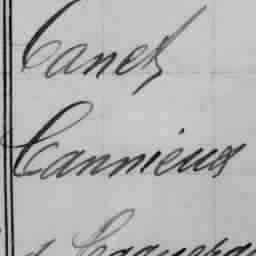 Canet
Cannieux